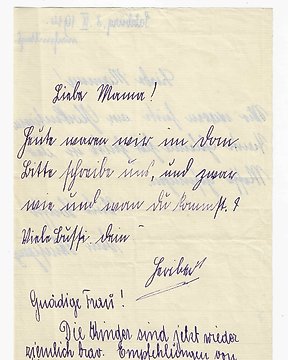 Liebe Mama!
Heute waren wir im Dom.
Bitte schreibe uns, und zwar
wie und wan du kommst.?
Viele Bussi. Dein
Heribert
Gnädige Frau!
Die Kinder sind jetzt wieder
ziemlich brav. Empfehlungen von